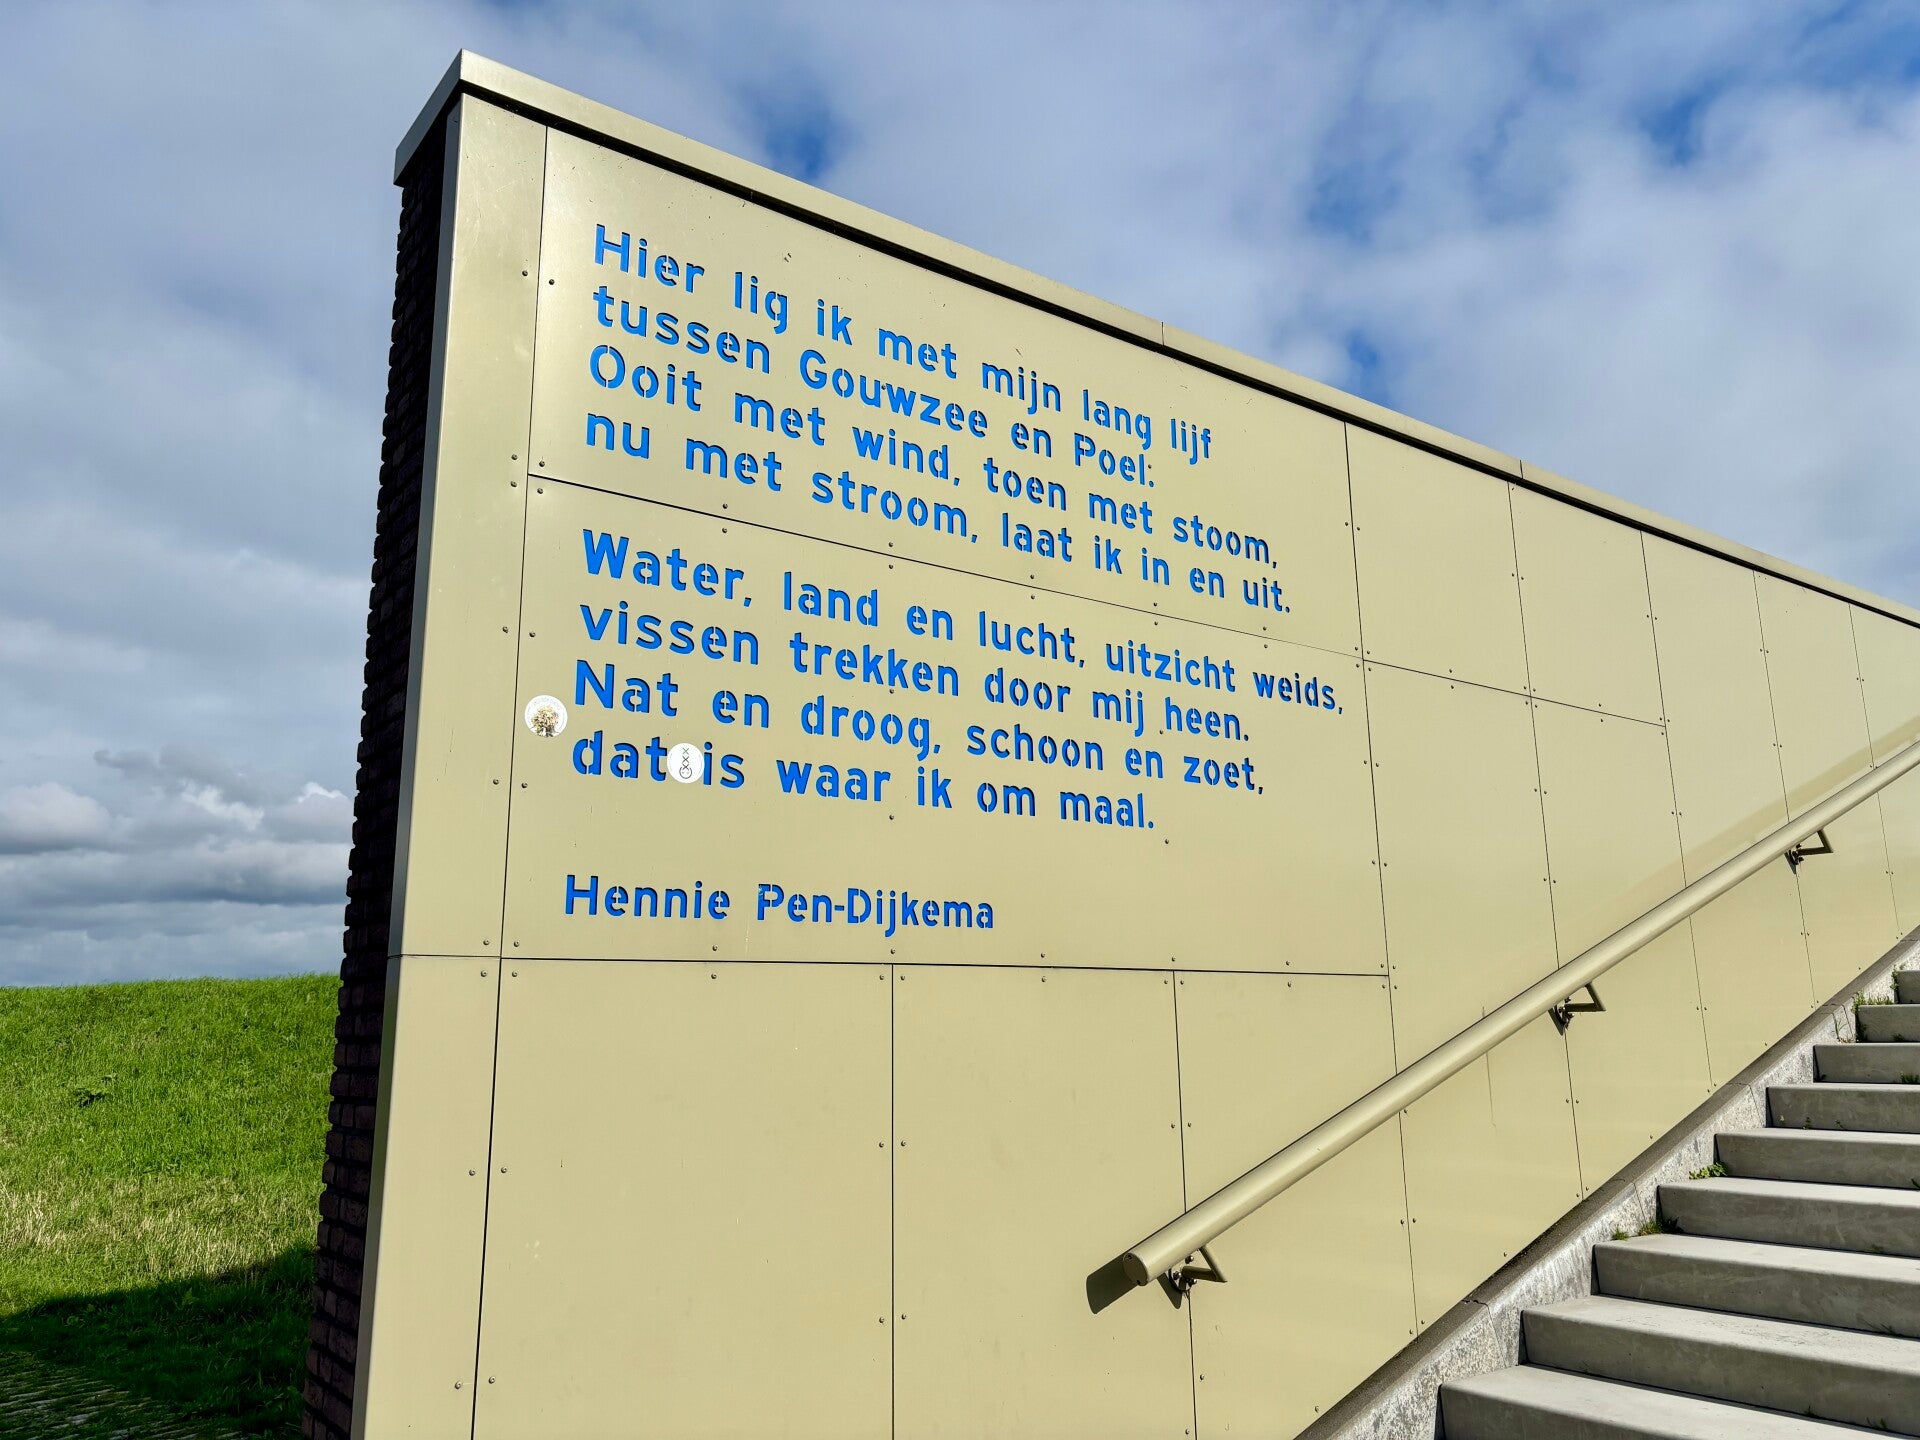 Hier lig ik met mijn lang lijf
tussen Gouwzee en Poel:
Ooit met wind, toen met stoom,
nu met stroom, laat ik in en uit.
Water, land en lucht, uitzicht weids,
vissen trekken door mij heen.
Nat en droog, schoon en zoet,
dat is waar ik om maal.
Hennie Pen-Dijkema